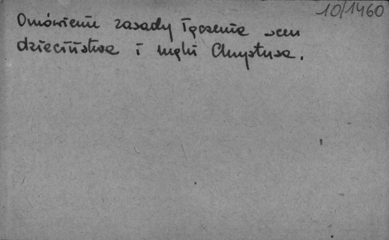 10/1460
Omówienie zasady łączenia scen
dzieciństwa i męki Chrystusa.